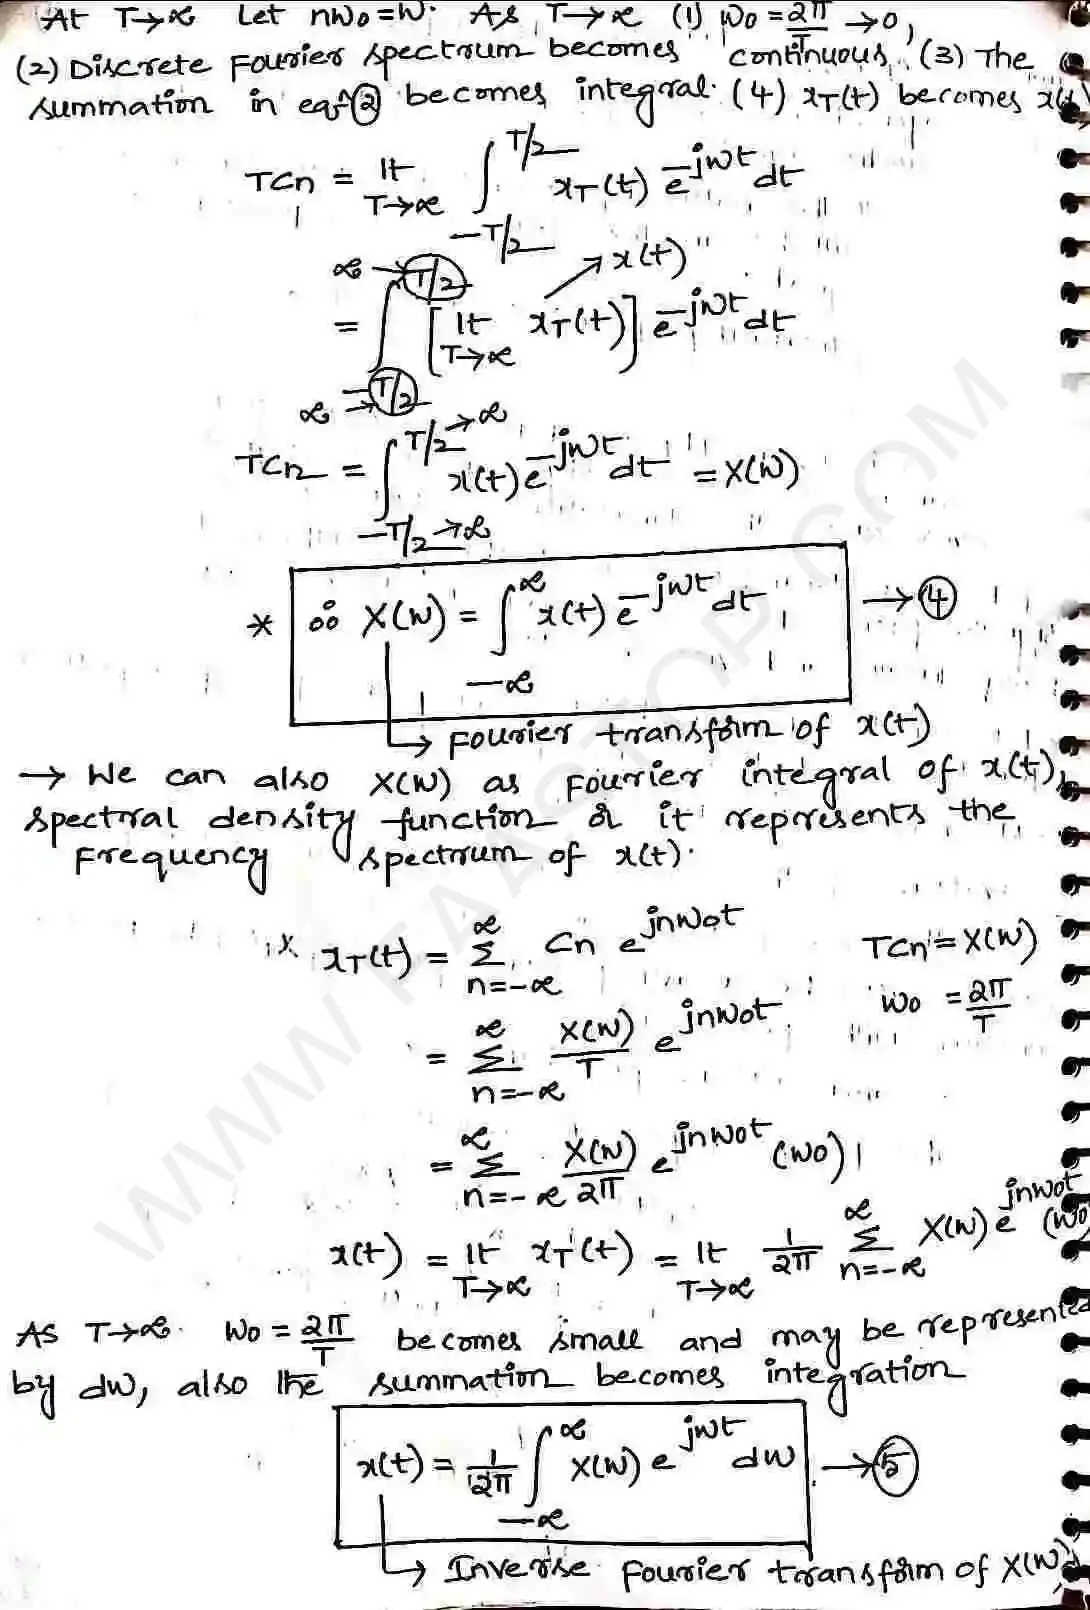 At T→∞ Let nω₀=ω. As T→∞ (1) ω₀ = 2π/T →0,
(2) Discrete Fourier spectrum becomes continuous, (3) The
summation in eqn ② becomes integral. (4) x_T(t) becomes x(t)
TCn = lt T→∞ ∫_{-T/2}^{T/2} x_T(t) e^{-jωt} dt
= ∫_{-T/2}^{T/2} [lt T→∞ x_T(t)] e^{-jωt} dt
∞ → T/2
→ x(t)
∞ → -T/2
TCn = ∫_{-T/2→∞}^{T/2→∞} x(t) e^{-jωt} dt = X(ω)
* ∴ X(ω) = ∫_{-∞}^{∞} x(t) e^{-jωt} dt → ④
↳ Fourier transform of x(t)
→ We can also X(ω) as Fourier integral of x(t),
spectral density function or it represents the
Frequency spectrum of x(t).
x x_T(t) = Σ_{n=-∞}^{∞} Cn e^{jnω₀t} TCn = X(ω)
= Σ_{n=-∞}^{∞} X(ω)/T e^{jnω₀t} ω₀ = 2π/T
= Σ_{n=-∞}^{∞} X(ω)/2π e^{jnω₀t} (ω₀)
x(t) = lt T→∞ x_T(t) = lt T→∞ 1/2π Σ_{n=-∞}^{∞} X(ω) e^{jnω₀t} (ω₀
As T→∞. ω₀ = 2π/T becomes small and may be represented
by dω, also the summation becomes integration
x(t) = 1/2π ∫_{-∞}^{∞} X(ω) e^{jωt} dω → ⑤
↳ Inverse Fourier transform of X(ω)
WWW.FAASTOP.COM